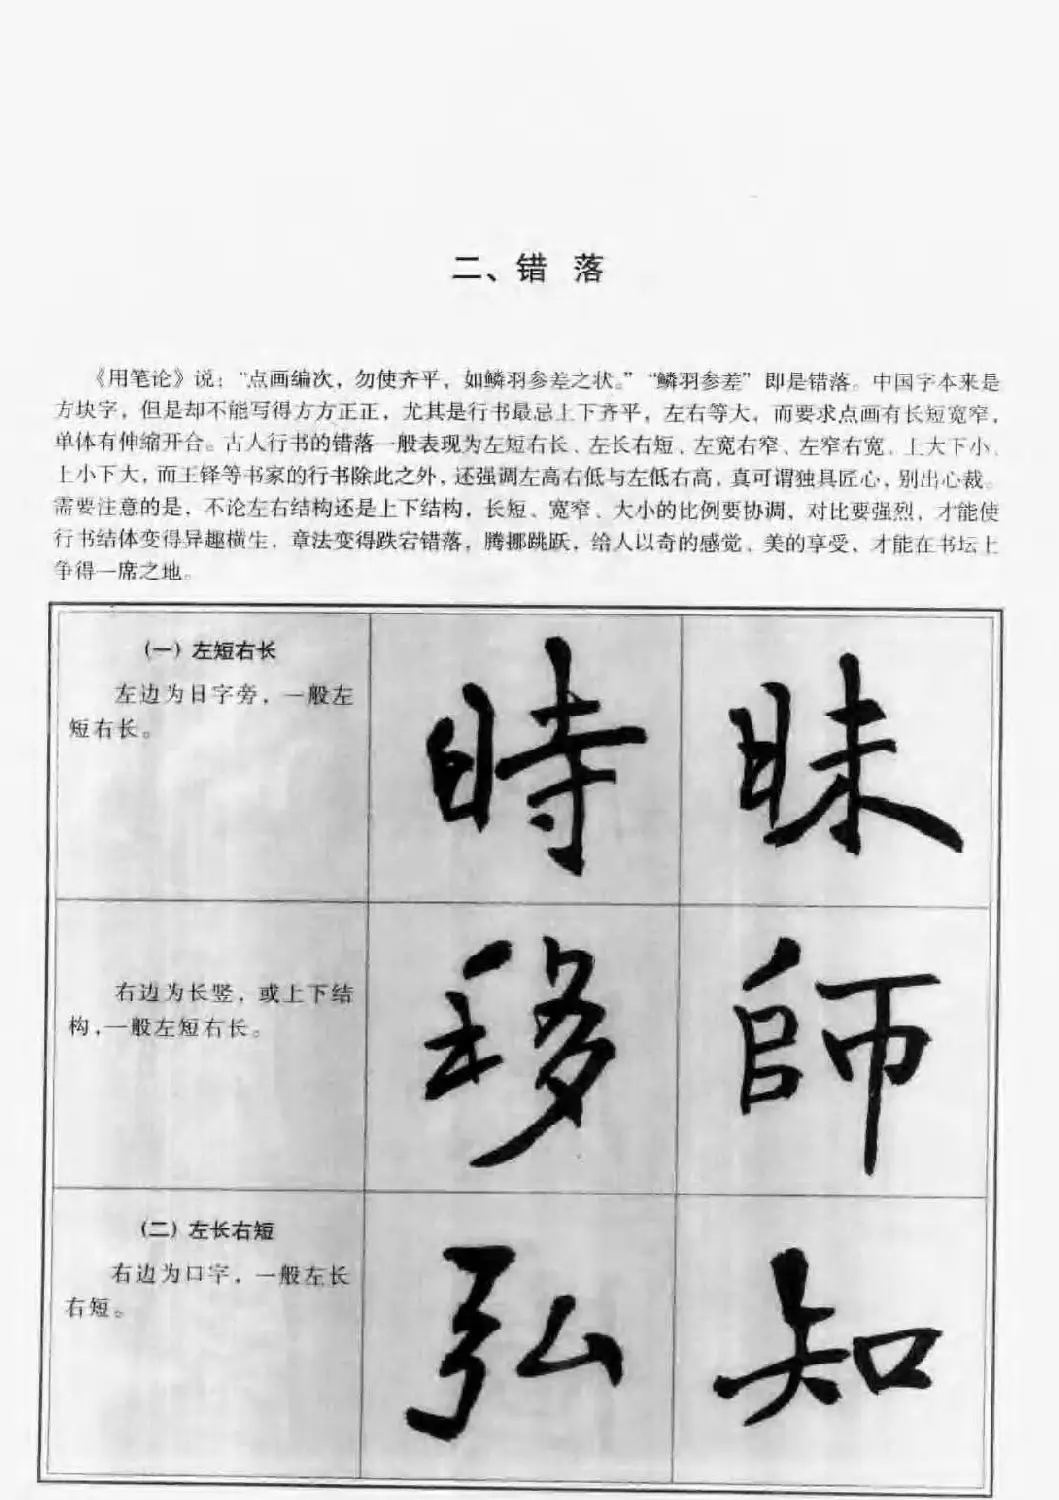 二、错 落
《用笔论》说：“点画编次，勿使齐平，如鳞羽参差之状。”“鳞羽参差”即是错落。中国字本来是
方块字，但是却不能写得方方正正，尤其是行书最忌上下齐平，左右等大，而要求点画有长短宽窄，
单体有伸缩开合。古人行书的错落一般表现为左短右长、左长右短、左宽右窄、左窄右宽、上大下小、
上小下大，而王铎等书家的行书除此之外，还强调左高右低与左低右高，真可谓独具匠心，别出心裁。
需要注意的是，不论左右结构还是上下结构，长短、宽窄、大小的比例要协调，对比要强烈，才能使
行书结体变得异趣横生，章法变得跌宕错落，腾挪跳跃，给人以奇的感觉、美的享受，才能在书坛上
争得一席之地。
（一）左短右长
左边为日字旁，一般左
短右长。
時 昧
右边为长竖，或上下结
构，一般左短右长。
移 師
（二）左长右短
右边为口字，一般左长
右短。
弘 知